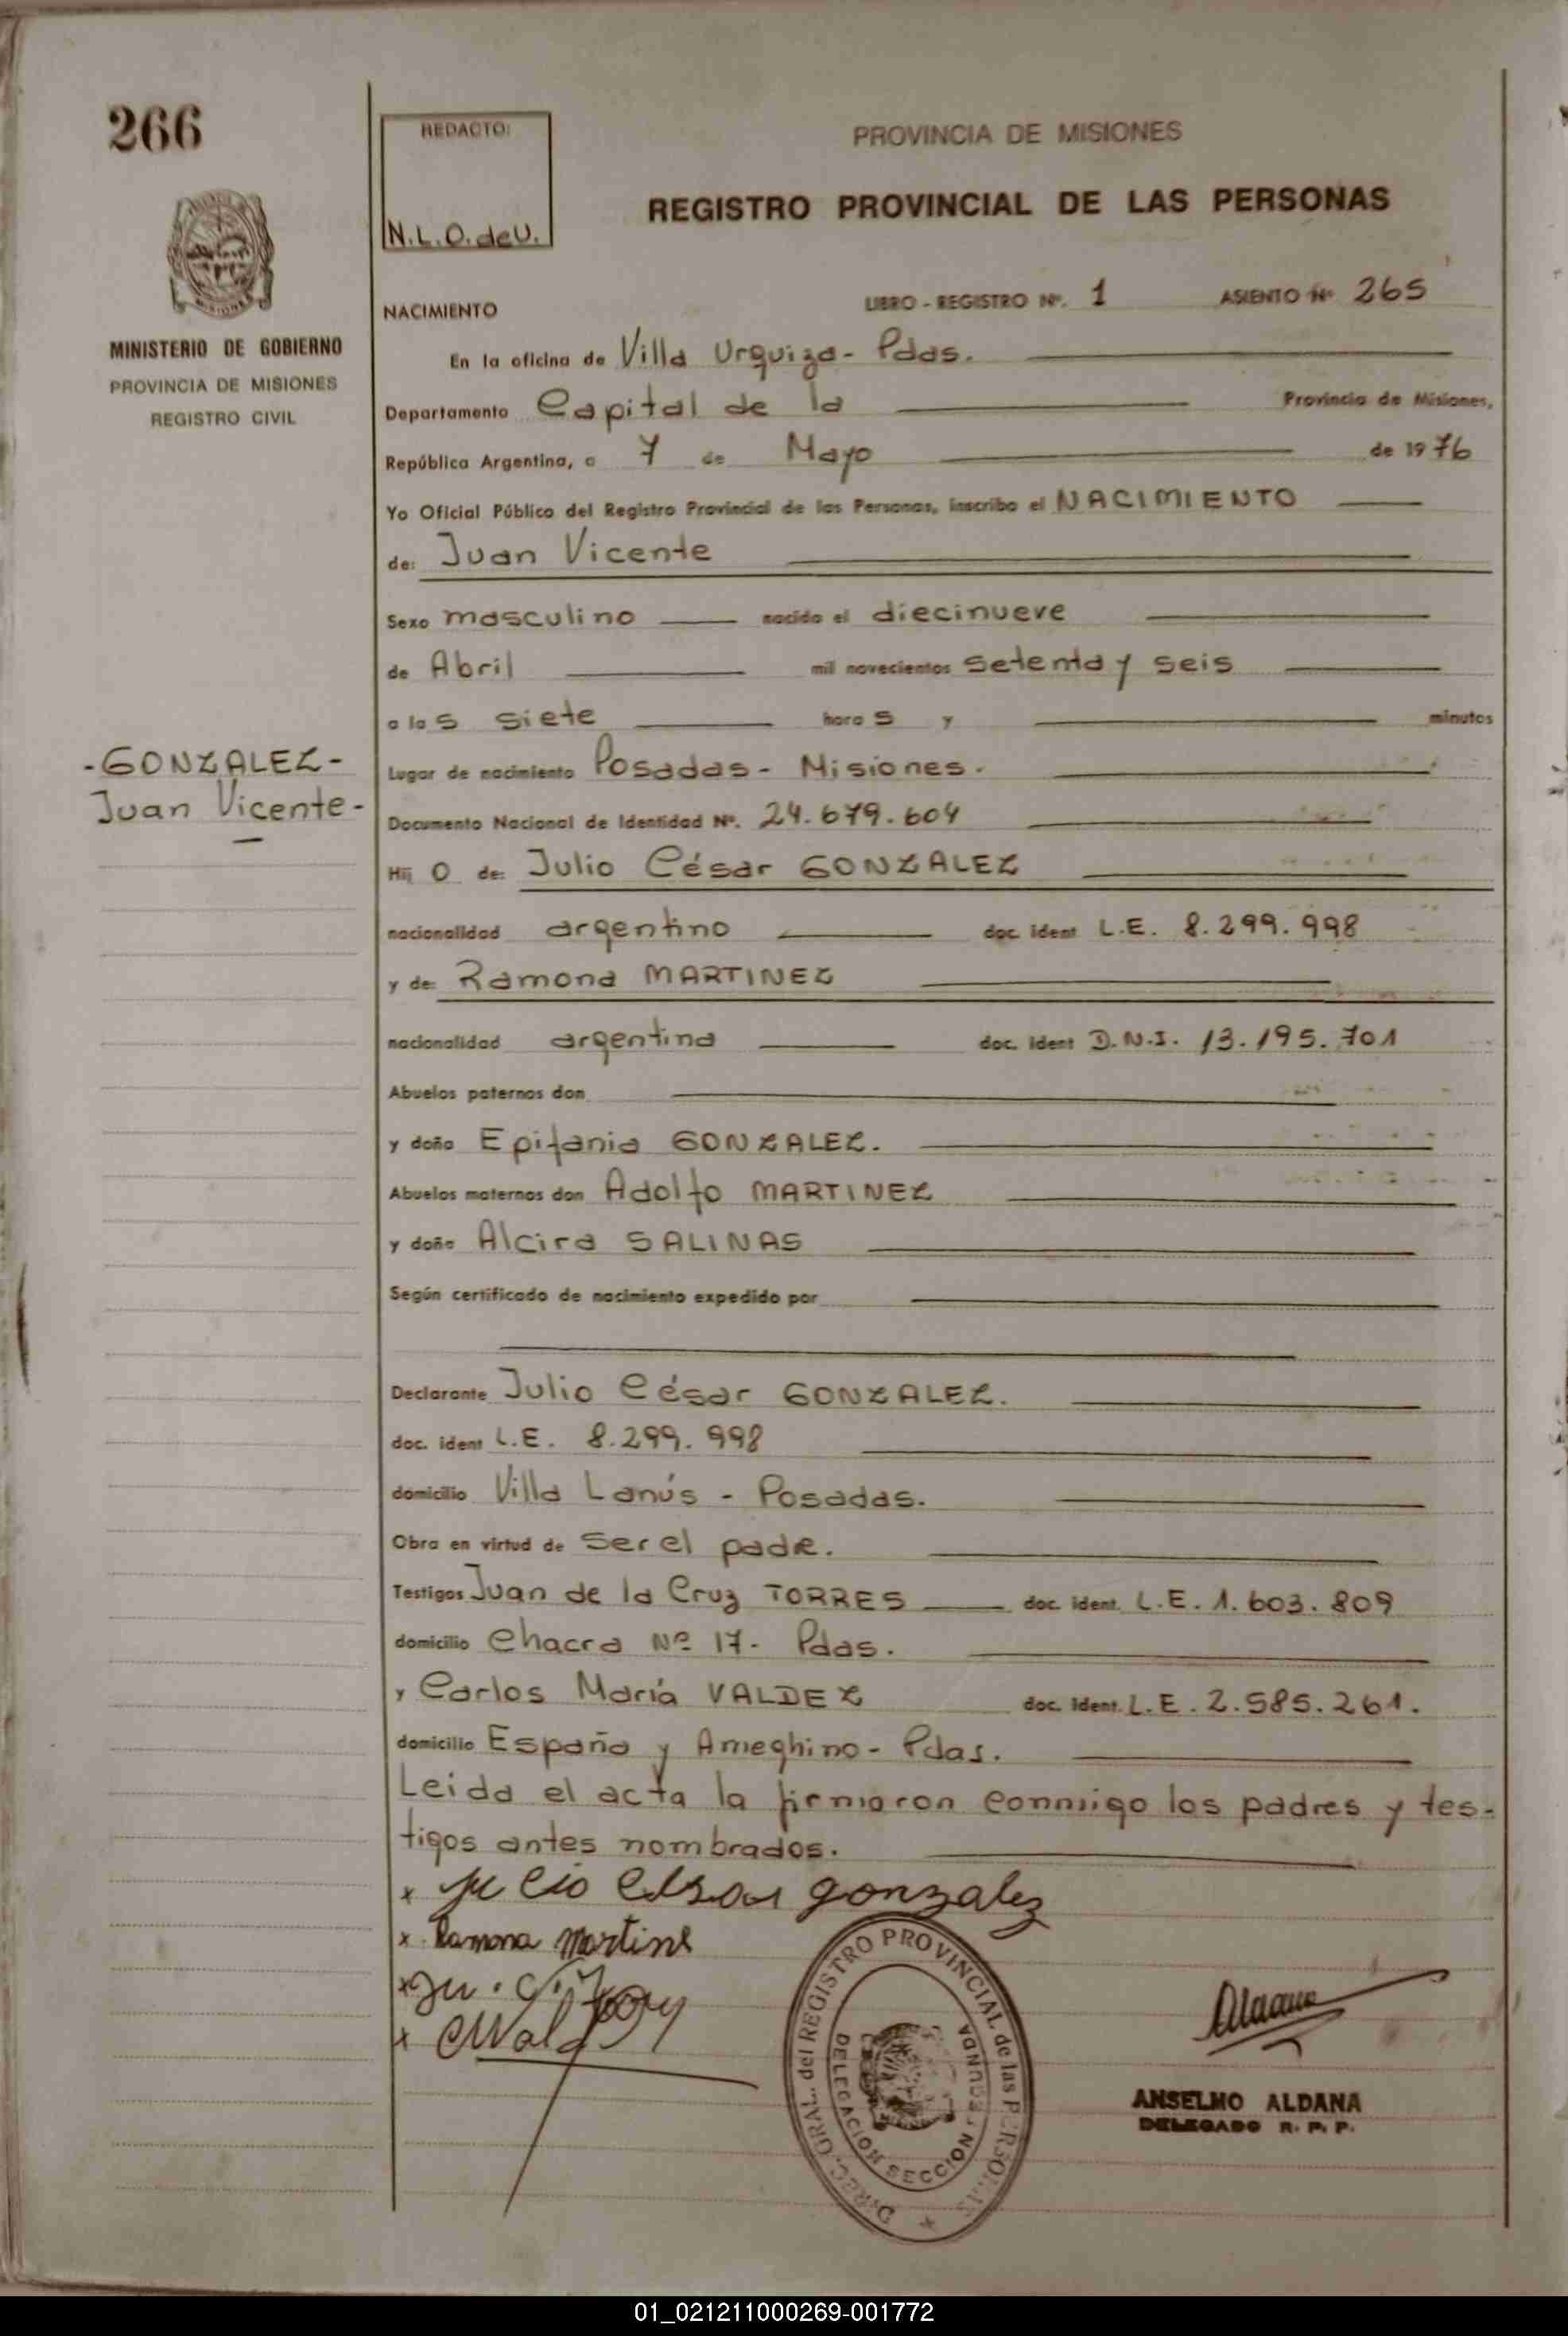 266
REDACTO:
N.L.O. de U.
PROVINCIA DE MISIONES
REGISTRO PROVINCIAL DE LAS PERSONAS
MINISTERIO DE GOBIERNO
PROVINCIA DE MISIONES
REGISTRO CIVIL
NACIMIENTO LIBRO - REGISTRO Nº. 1 ASIENTO Nº 265
En la oficina de Villa Urquiza - Pdas.
Departamento Capital de la Provincia de Misiones,
República Argentina, a 7 de Mayo de 1976
Yo Oficial Público del Registro Provincial de las Personas, inscribo el NACIMIENTO
de: Juan Vicente
Sexo masculino nacido el diecinueve
de Abril mil novecientos setenta y seis
a las siete horas y minutos
-GONZALEZ-
Juan Vicente-
Lugar de nacimiento Posadas - Misiones.
Documento Nacional de Identidad Nº. 24.679.604
Hijo de: Julio César GONZALEZ
nacionalidad argentino doc. ident L.E. 8.299.998
y de: Ramona MARTINEZ
nacionalidad argentina doc. ident D.N.I. 13.195.701
Abuelos paternos don
y doña Epifania GONZALEZ.
Abuelos maternos don Adolfo MARTINEZ
y doña Alcira SALINAS
Según certificado de nacimiento expedido por
Declarante Julio César GONZALEZ.
doc. ident L.E. 8.299.998
domicilio Villa Lanús - Posadas.
Obra en virtud de ser el padre.
Testigos Juan de la Cruz TORRES doc. ident. L.E. 1.603.809
domicilio Chacra Nº 17 - Pdas.
y Carlos María VALDEZ doc. ident. L.E. 2.585.261.
domicilio España y Ameghino - Pdas.
Leida el acta la firmaron conmigo los padres y tes-
tigos antes nombrados.
x Julio Cesar gonzalez
x Ramona Martine
DIREC. GRAL. del REGISTRO PROVINCIAL de las PERSONAS
DELEGACION SECCION SEGUNDA
ANSELMO ALDANA
DELEGADO R. P. P.
01_021211000269-001772